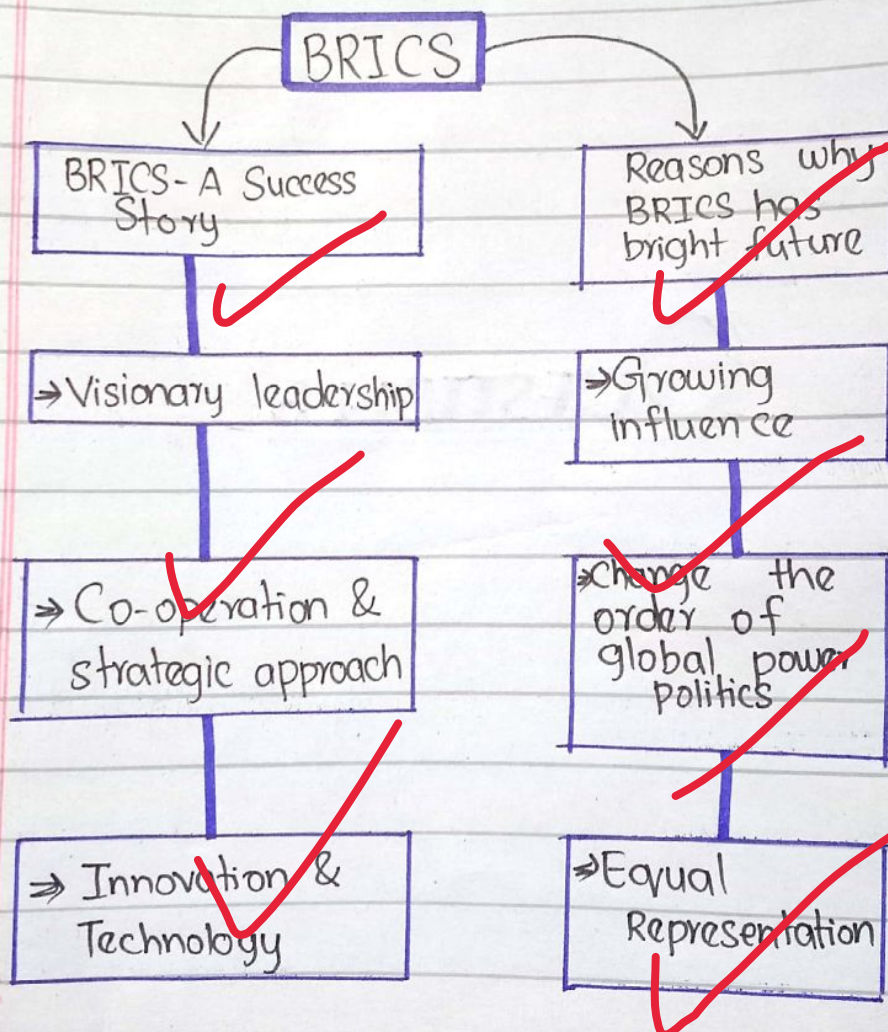 BRICS
BRICS- A Success
Story
→ Visionary leadership
→ Co-operation &
strategic approach
→ Innovation &
Technology
Reasons why
BRICS has
bright future
→ Growing
influence
→ Change the
order of
global power
politics
→ Equal
Representation